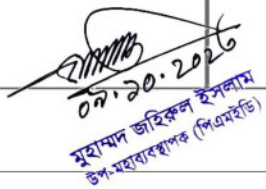 ০৯.১০.২০২৫
মুহাম্মদ জহিরুল ইসলাম
উপ-মহাব্যবস্থাপক (পিএমইডি)